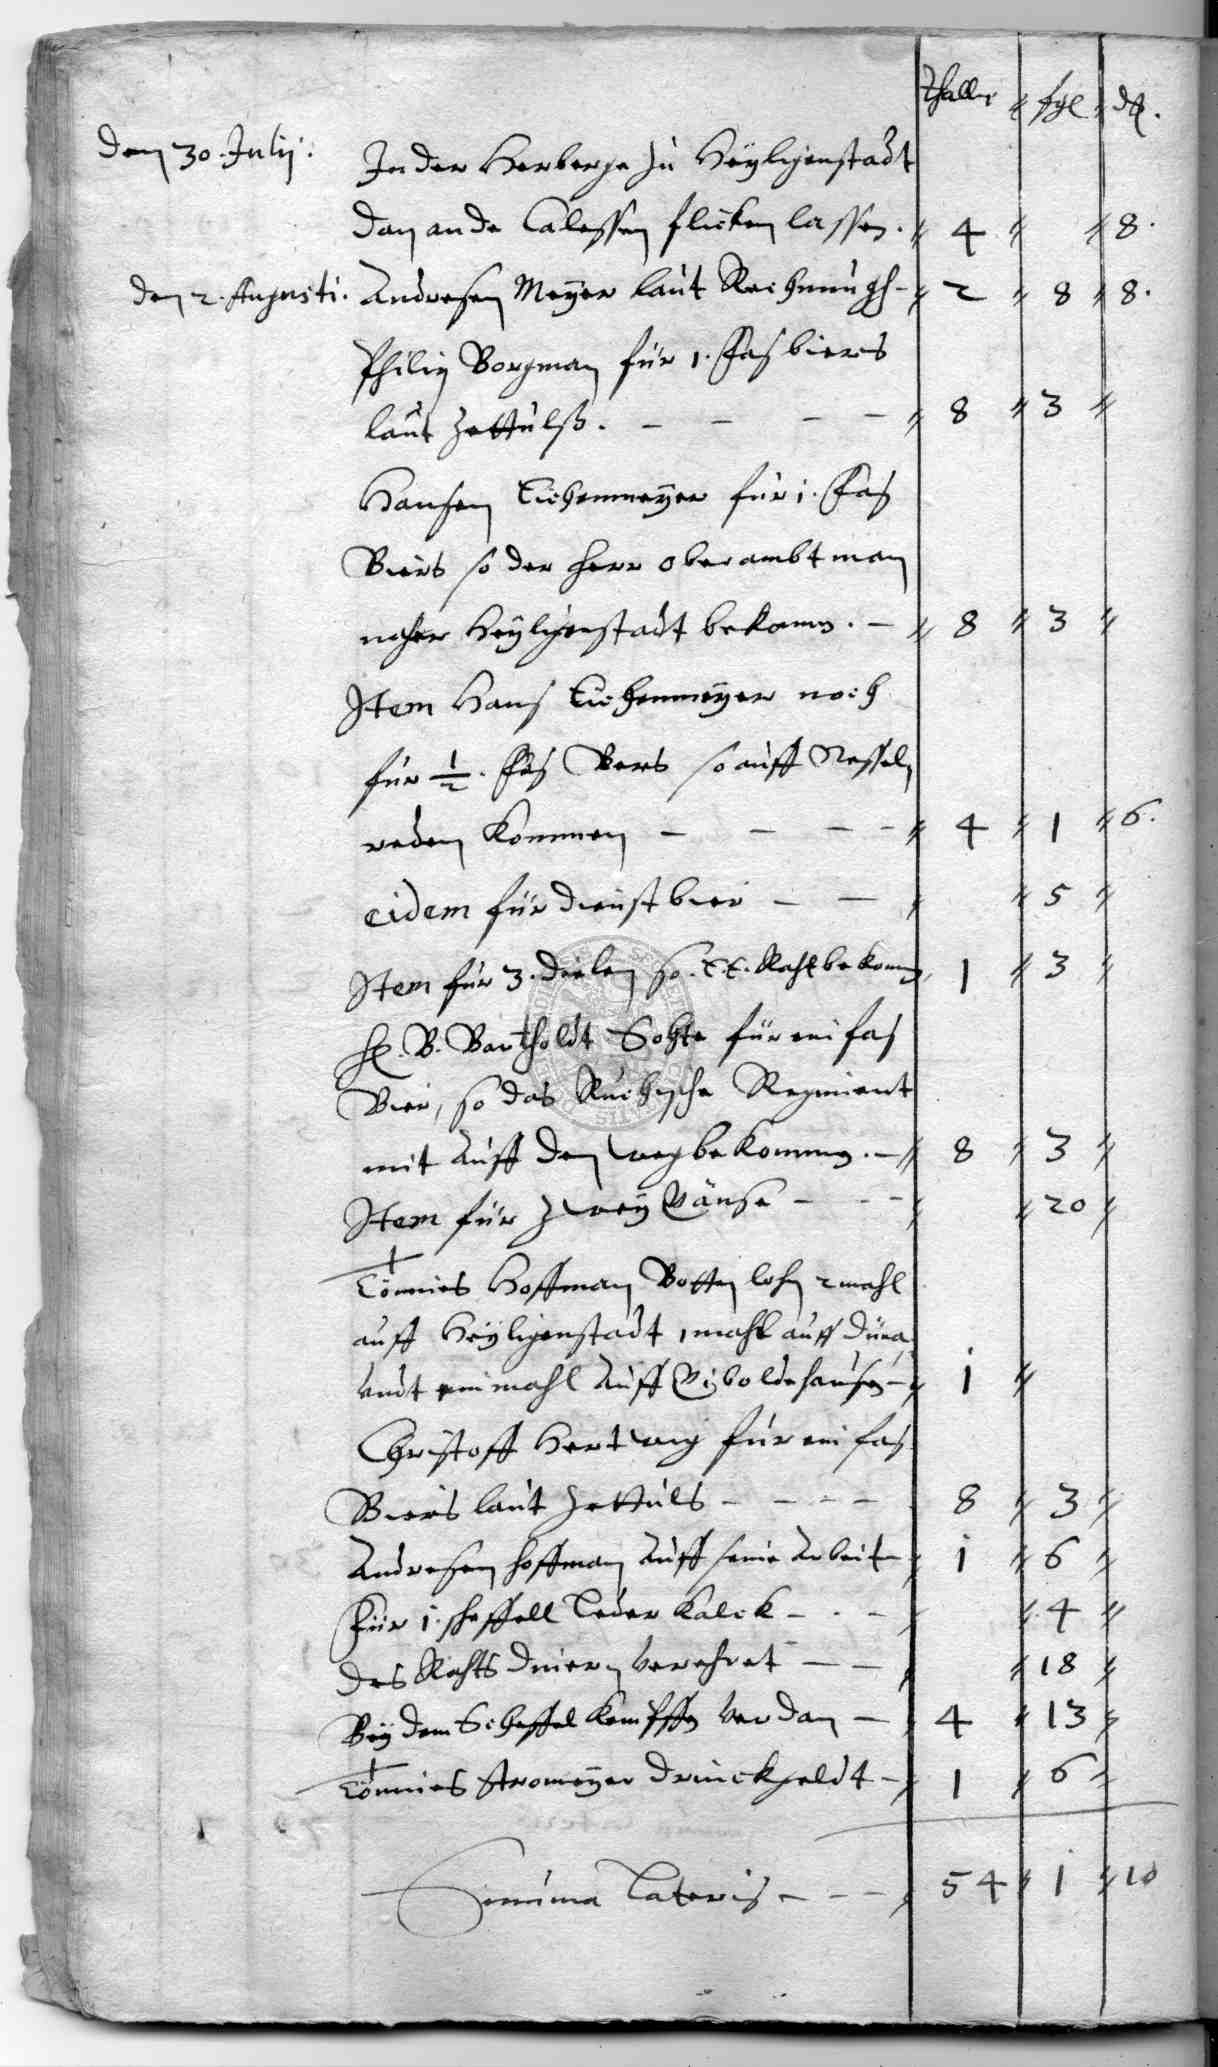 Thaller fgl d.
den 30. Julij. In der Herberge zu Heyligenstadt
dan an de Calessen flicken lassen. 4 8.
den 2. Augusti. Andresen Meyer laut Rechnungh 2 8 8.
Philip Borgman für 1. Fas biers
laut Zettulß. 8 3
Hansen Eichenmeyer für 1. Fas
Biers so der Herr oberambtman
naher Heyligenstadt bekomm. 8 3
Item Hans Eichenmeyer noch
für 1/2. Fas Biers so auff Nesseln
reden kommen 4 1 6.
eidem für dienst bier 5
Item für 3. dielen so E. E. Raht bekomm 1 3
H. B. Bartholdt für ein fas
Bier, so das Regiment
mit auff den weg bekommen. 8 3
Item für zwey Gänse 20
Tönnies Hoffman Botten lohn 2 mahl
auff Heyligenstadt 1 mahl auff
undt ein mahl auff Giboldehausen 1
Christoff Hertwig für ein fas
Biers laut Zettuls 8 3
Andresen Hoffman auff seine Arbeit 1 6
Für 1. scheffell Leder Kalck 4
Des Rahts dienern verehret 18
Bey dem Scheffel 4 13
Tönnies Stromeyer Drinckgeldt 1 6
Summa Lateris 54 1 10